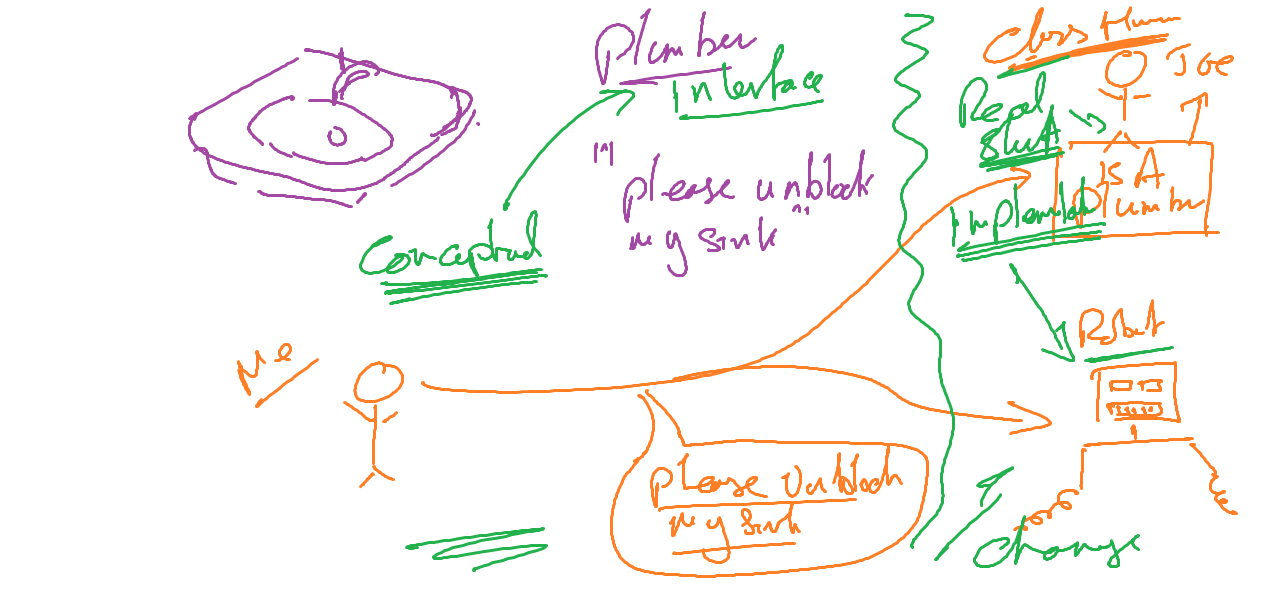 Plumber
Interface
"
please unblock
my sink "
Conceptual
Class Human
JOE
Real
Stuff
IS A
Plumber
Implementation
Robot
Me
please unblock
my sink
Change